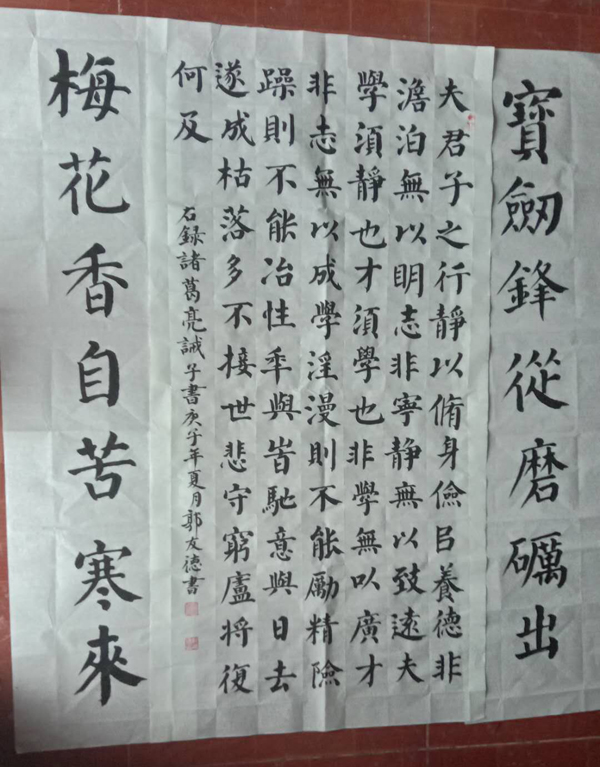 寶劒鋒從磨礪出
夫君子之行靜以脩身儉㠯養德非
澹泊無以明志非寧靜無以致遠夫
學須靜也才須學也非學無以廣才
非志無以成學淫漫則不能勵精險
躁則不能冶性年與旹馳意與日去
遂成枯落多不接世悲守窮廬將復
何及
右録諸葛亮誡子書庚子年夏月郭友德書
梅花香自苦寒來